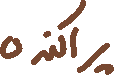 پراکنده